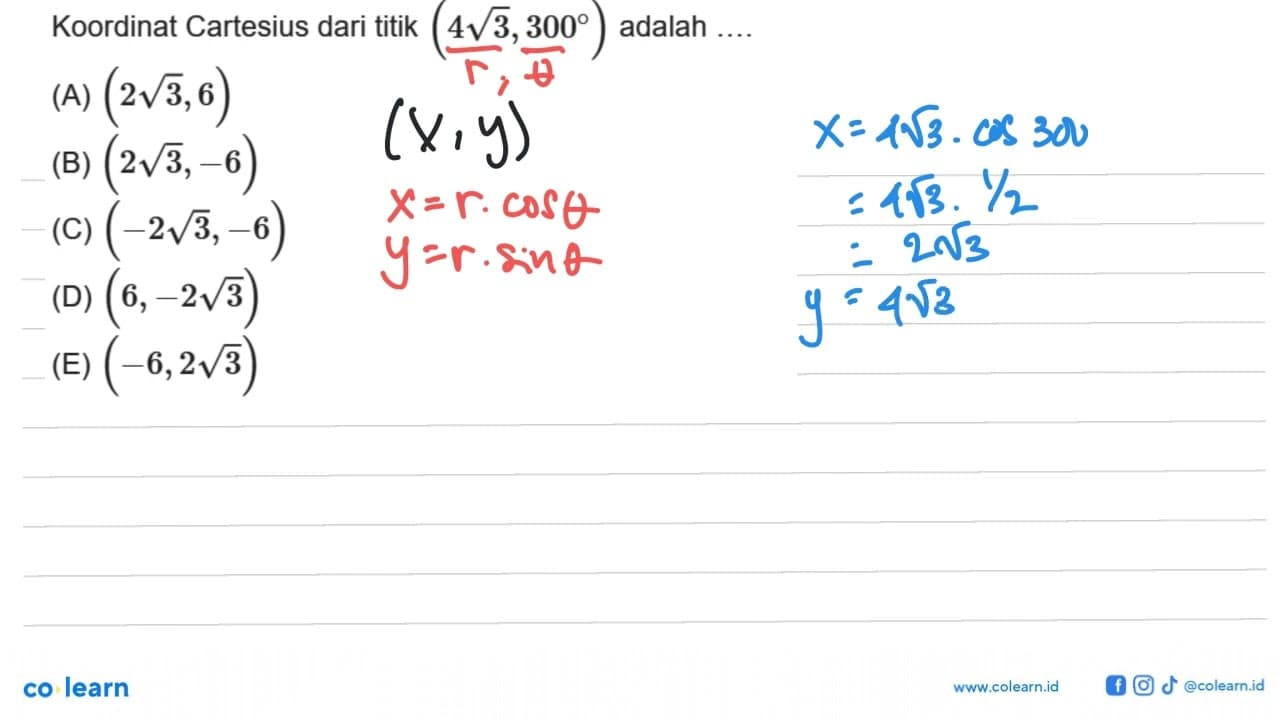 Koordinat Cartesius dari titik (4√3, 300°) adalah ....
r, θ
(A) (2√3, 6)
(B) (2√3, −6)
(C) (−2√3, −6)
(D) (6, −2√3)
(E) (−6, 2√3)
(x, y)
x = r. cos θ
y = r. sin θ
x = 4√3 . cos 300
= 4√3 . 1/2
= 2√3
y = 4√3
co learn
www.colearn.id
@colearn.id